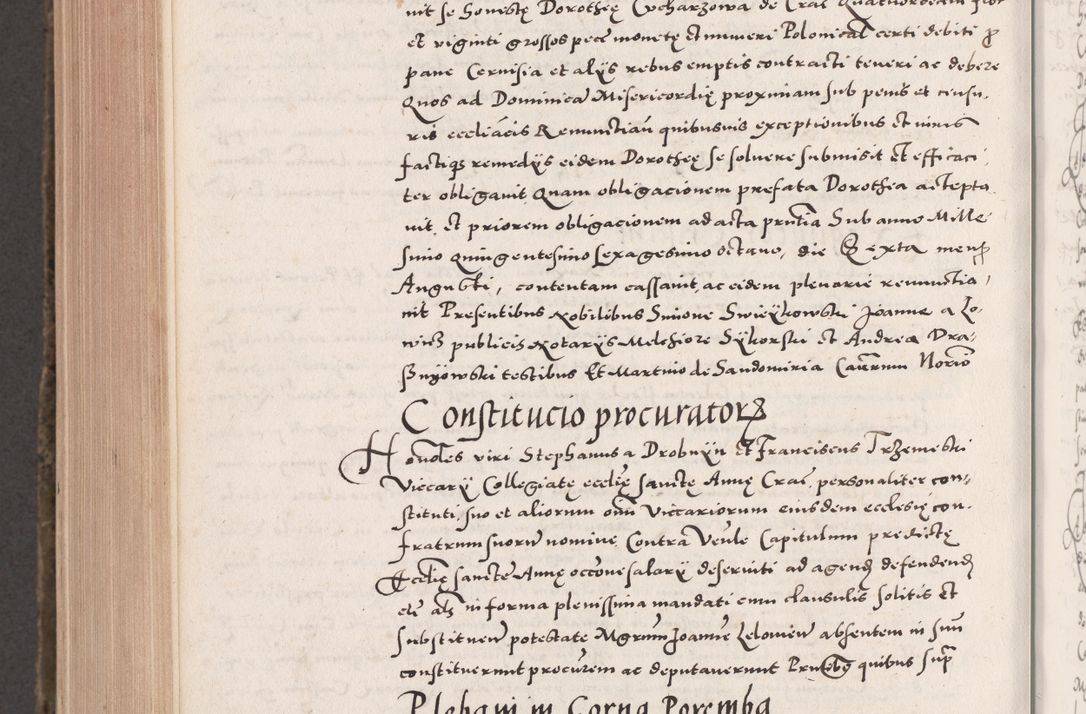 nit se Honestę Dorotheę Cucharzowa de Crac
et viginti grossos pecc monetę et numeri Polonical certi debiti p
pane Cervisia et alijs rebus emptis contracti teneri ac debere
Quos ad Dominica Misericordię proximam sub penis et censu
ris eccliacis Renuncian quibusuis exceptionibus et
factiq remedijs eidem Dorotheę se soluere submisit et efficaci
ter obligauit Quam obligacionem prefata Dorothea accepta
uit, et priorem obligacionem ad acta prntia Sub anno Mille
simo quingentesimo sexagesimo octauo, die Sexta mens
Angusti, contentam cassauit, ac eidem plenarie renunctia
nit Presentibus Nobilibus Simone Swieykowski Joanne a Lo
wicz publicis Notarijs Melchiore Sykorski et Andrea Dra
testibus Et Martino de Sandomiria Causarum Notrio
Constitucio procurator
Honoles viri Stephanus a Drobnyn et Franciscus Trzemeski
Viccarij Collegiatę ecclię sanctę Annę Crac, personaliter con
stituti, suo et aliorum omi Viccariorum eiusdem ecclesię con
fratrum suoru nomine, Contra Venle Capitulum predictę
Ecclię sanctę Annę occone salarij deseruiti ad agend defendend
etc als in forma plenissima mandati cum clausulis solitis et
substituen potestate Mgrum Joanne Lelowien absentem in suu
constituerunt procurem ac deputauerunt Prntibs quibus sup
Plebani in Corna Poremba